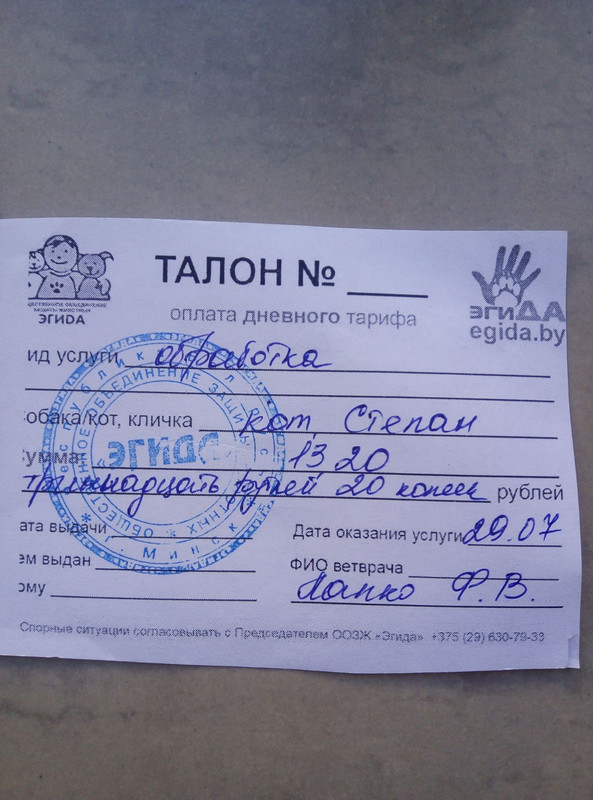 ТАЛОН № ____
оплата дневного тарифа
ЭГИДА
эгиДА
egida.by
ид услуги обработка
обака/кот, кличка кот Степан
умма: 13 20
тринадцать рублей 20 копеек рублей
ата выдачи
Дата оказания услуги 29.07
ем выдан
ФИО ветврача
ому
Лапко Ф.В.
Спорные ситуации согласовывать с Председателем ООЗЖ «Эгида» +375 (29) 630-79-33
"ЭГИДА"
г. Минск